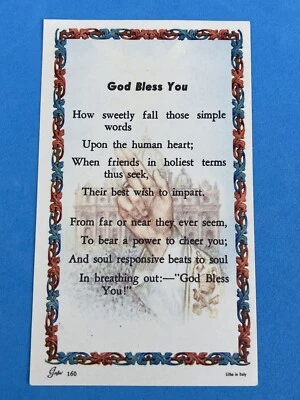 God Bless You
How sweetly fall those simple
words
Upon the human heart;
When friends in holiest terms
thus seek,
Their best wish to impart.
From far or near they ever seem,
To bear a power to cheer you;
And soul responsive beats to soul
In breathing out:—"God Bless
You!"
160
Litho in Italy